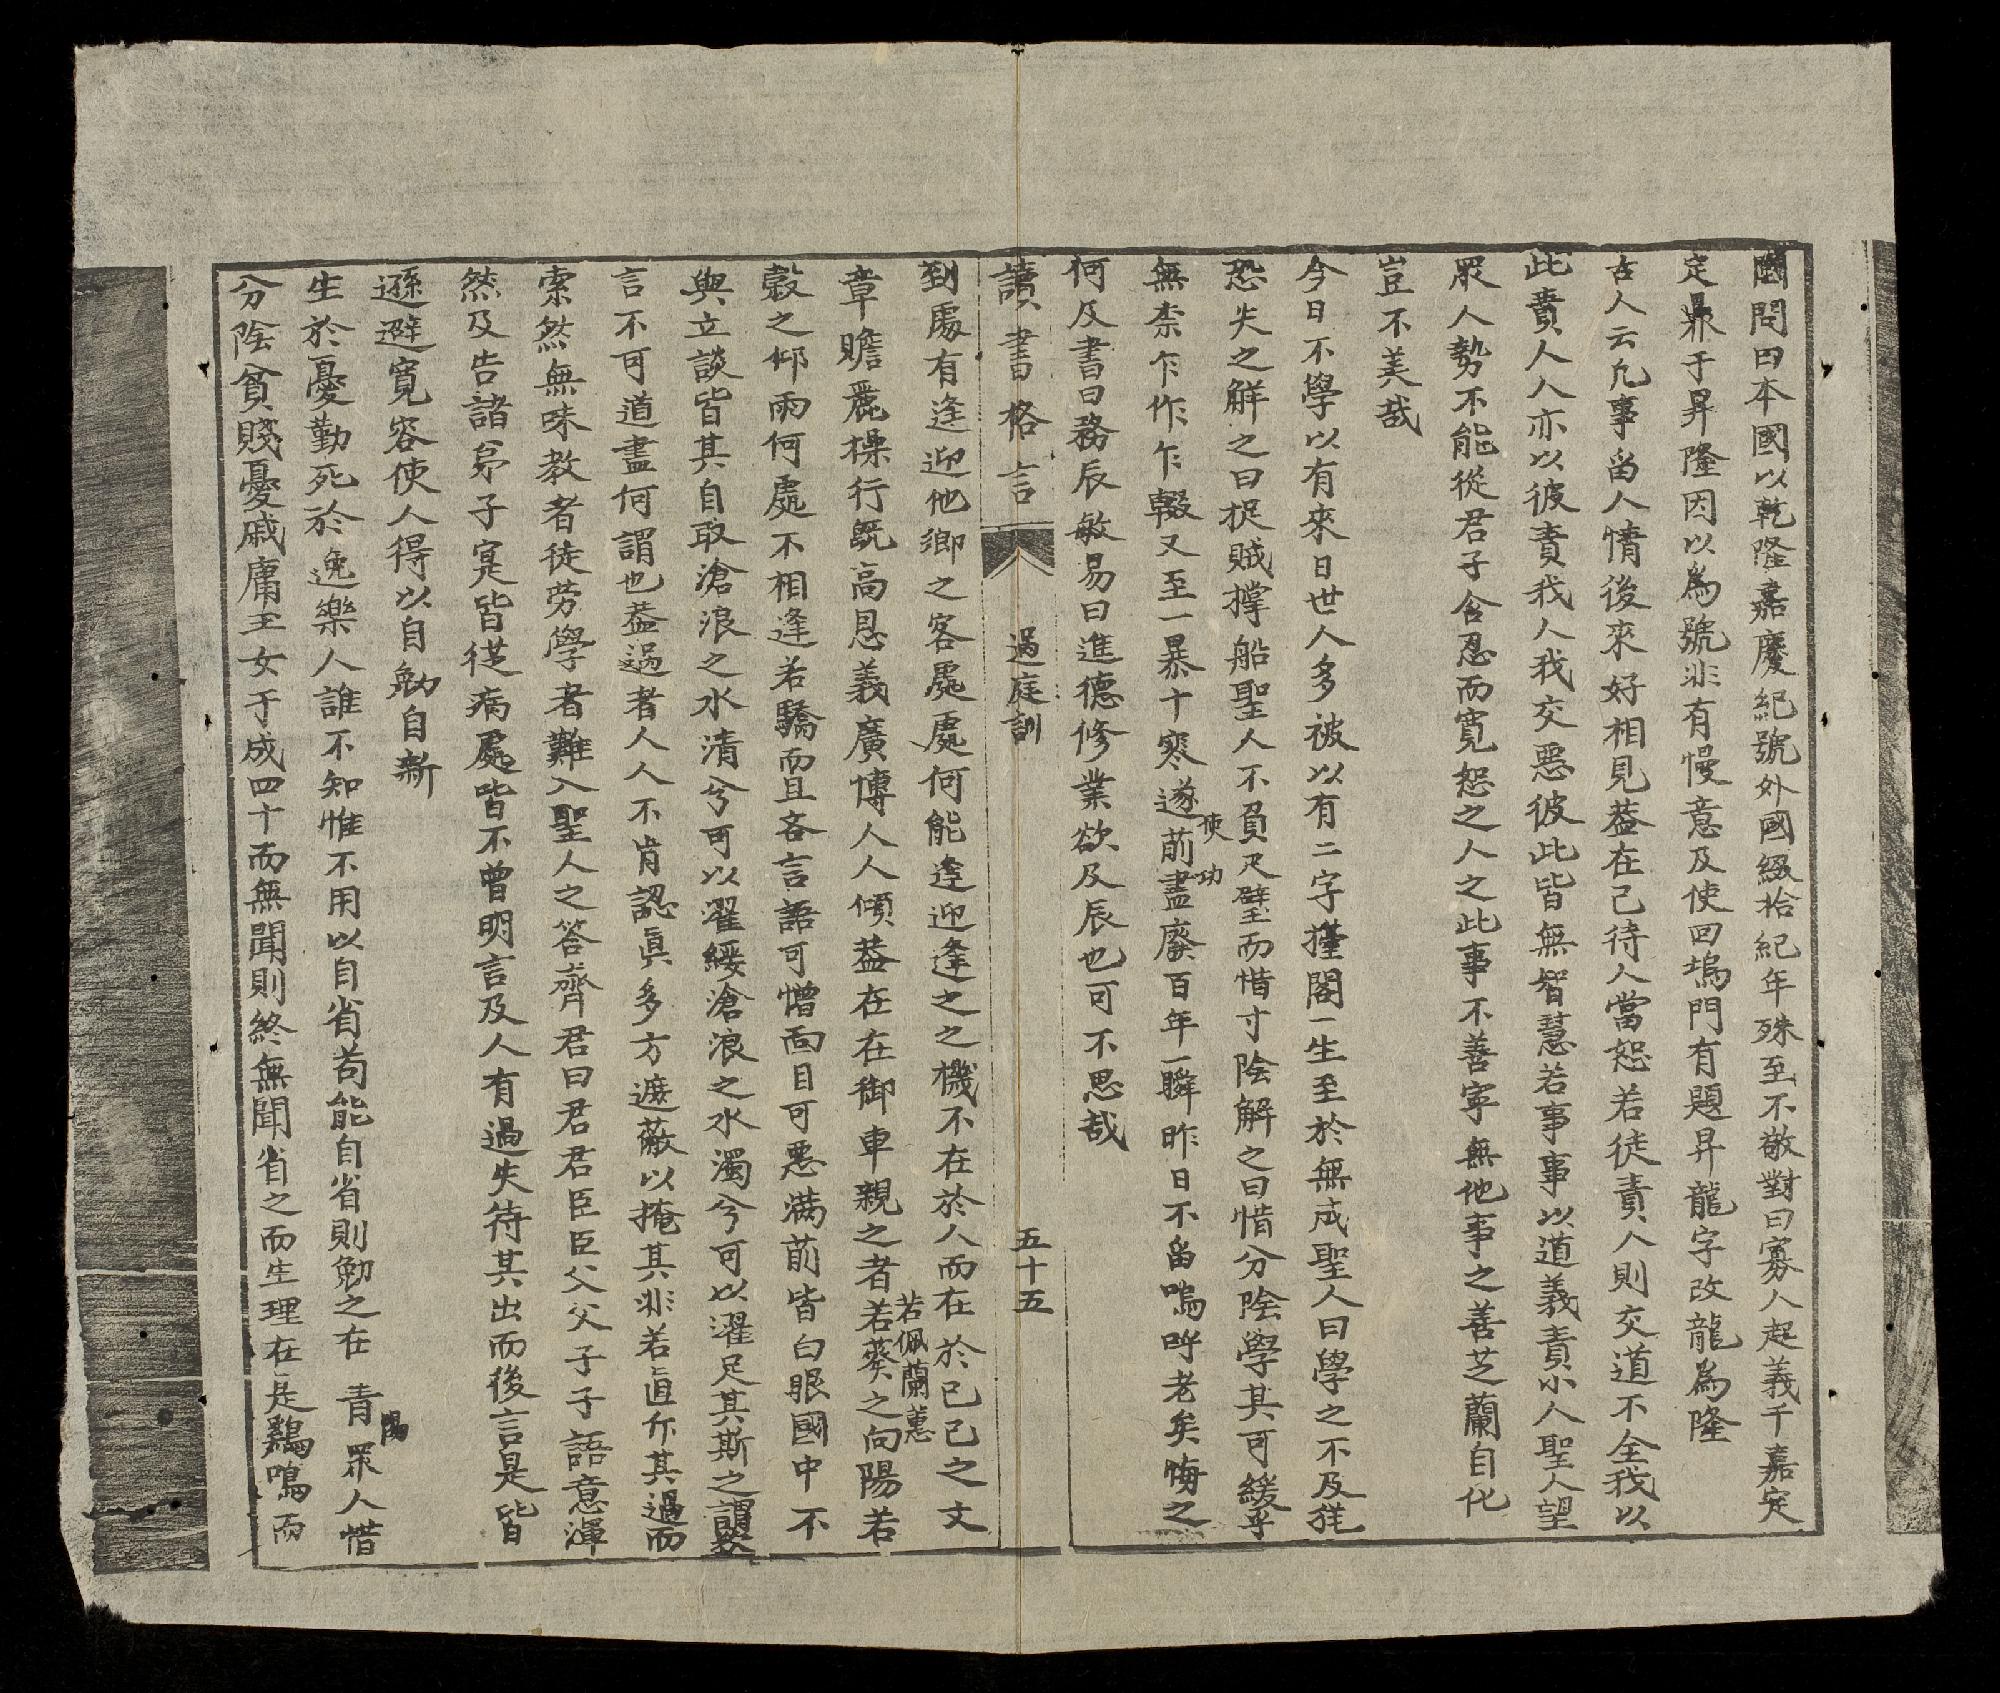 國問曰本國以乾隆嘉慶紀號外國綴拾紀年殊至不敬對曰寡人起義千嘉定
定鼎于昇隆因以為號非有慢意及使回塢門有題昇龍字改龍為隆
古人云凢事畄人情後來好相見葢在己待人當恕若徒責人則交道不全我以
此責人人亦以彼責我人我交惡彼此皆無智慧若事事以道義責小人聖人望
眾人勢不能從君子含忍而寬恕之人之此事不善寧無他事之善芝蘭自化
豈不美哉
今日不學以有來日世人多被以有二字擔閣一生至於無成聖人曰學之不及猶
恐失之解之曰捉賊撑船聖人不負尺璧而惜寸陰解之曰惜分陰學其可緩乎
無柰乍乍作乍乍輟又至一暴十寒遂使前功盡廢百年一瞬昨日不畄嗚呼老矣悔之
何及書曰務辰敏易曰進德修業欲及辰也可不思哉
讀書格言 過庭訓 五十五
到處有逢迎他鄉之客處處何能逢迎逢之之機不在於人而在於己己之文
章贍麗操行旣高恩義廣博人人傾葢在在御車親之者若葵之向陽若佩蘭蕙若
穀之仰雨何處不相逢若驕而且吝言語可憎面目可惡满前皆白眼國中不
與立談皆其自取滄浪之水清兮可以濯綏滄浪之水濁兮可以濯足其斯之謂歟
言不可道盡何謂也葢過者人人不肯認眞多方遮蔽以掩其非若直斥其過而
索然無味教者徒劳學者難入聖人之答齊君曰君君臣臣父父子子語意渾
然及告諸弟子寔皆從病處皆不曾明言及人有過失待其出而後言是皆
遜避寬容使人得以自勉自新
生於憂勤死於逸樂人誰不知惟不用以自省苟能自省則勉之在 青陽眾人惜
分陰貧賤憂戚庸玉女于成四十而無聞則終無聞省之而生理在是鷄鳴而